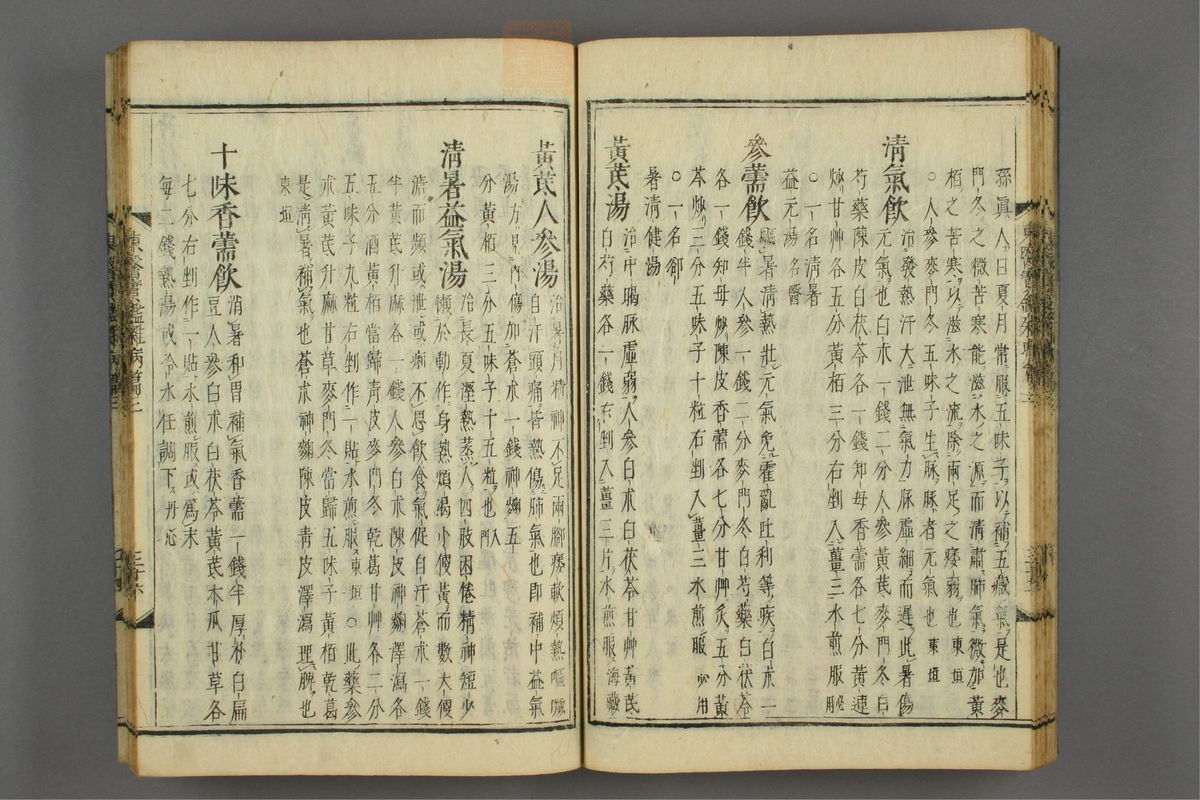 孫眞人曰夏月常服五味子以補五藏氣是也麥
門冬之微苦寒能滋水之源而清肅肺氣微加黃
栢之苦寒以滋水之流除兩足之痿弱也東垣
○人參麥門冬五味子生脉脉者元氣也東垣
清氣飮治發熱汗大泄無氣力脉虛細而遲此暑傷
元氣也白朮一錢二分人參黃芪麥門冬白
芍藥陳皮白茯苓各一錢知母香薷各七分黃連
炒甘艸各五分黃栢三分右剉入薑三水煎服
○一名淸暑
益元湯名醫
參薷飮驅暑淸熱壯元氣免霍亂吐利等疾白朮一
錢半人參一錢二分麥門冬白芍藥白茯苓
各一錢知母炒陳皮香薷各七分甘艸炙五分黃
芩炒三分五味子十粒右剉入薑三水煎服必用
○一名卻
暑淸健湯
黃芪湯治中暍脉虛弱人參白朮白茯苓甘艸黃芪
白芍藥各一錢右剉入薑三片水煎服海藏
黃芪人參湯治暑月精神不足兩腳痿軟煩熱嘔噦
自汗頭痛皆熱傷肺氣也即補中益氣
湯方見內傷加蒼朮一錢神麴五
分黃栢三分五味子十五粒也入門
淸暑益氣湯治長夏溼熱蒸人四肢困倦精神短少
懶於動作身熱煩渴小便黃而數大便
溏而頻或泄或痢不思飮食氣促自汗蒼朮一錢
半黃芪升麻各一錢人參白朮陳皮神麴澤瀉各
五分酒黃栢當歸靑皮麥門冬乾葛甘艸各二分
五味子九粒右剉作一貼水煎服東垣○此藥參
朮黃芪升麻甘草麥門冬當歸五味子黃栢乾葛
是淸暑補氣也蒼朮神麴陳皮靑皮澤瀉理脾也
東垣
十味香薷飮消暑和胃補氣香薷一錢半厚朴白扁
豆人參白朮白茯苓黃芪木瓜甘草各
七分右剉作一貼水煎服或爲末
每二錢熱湯或冷水任調下丹心